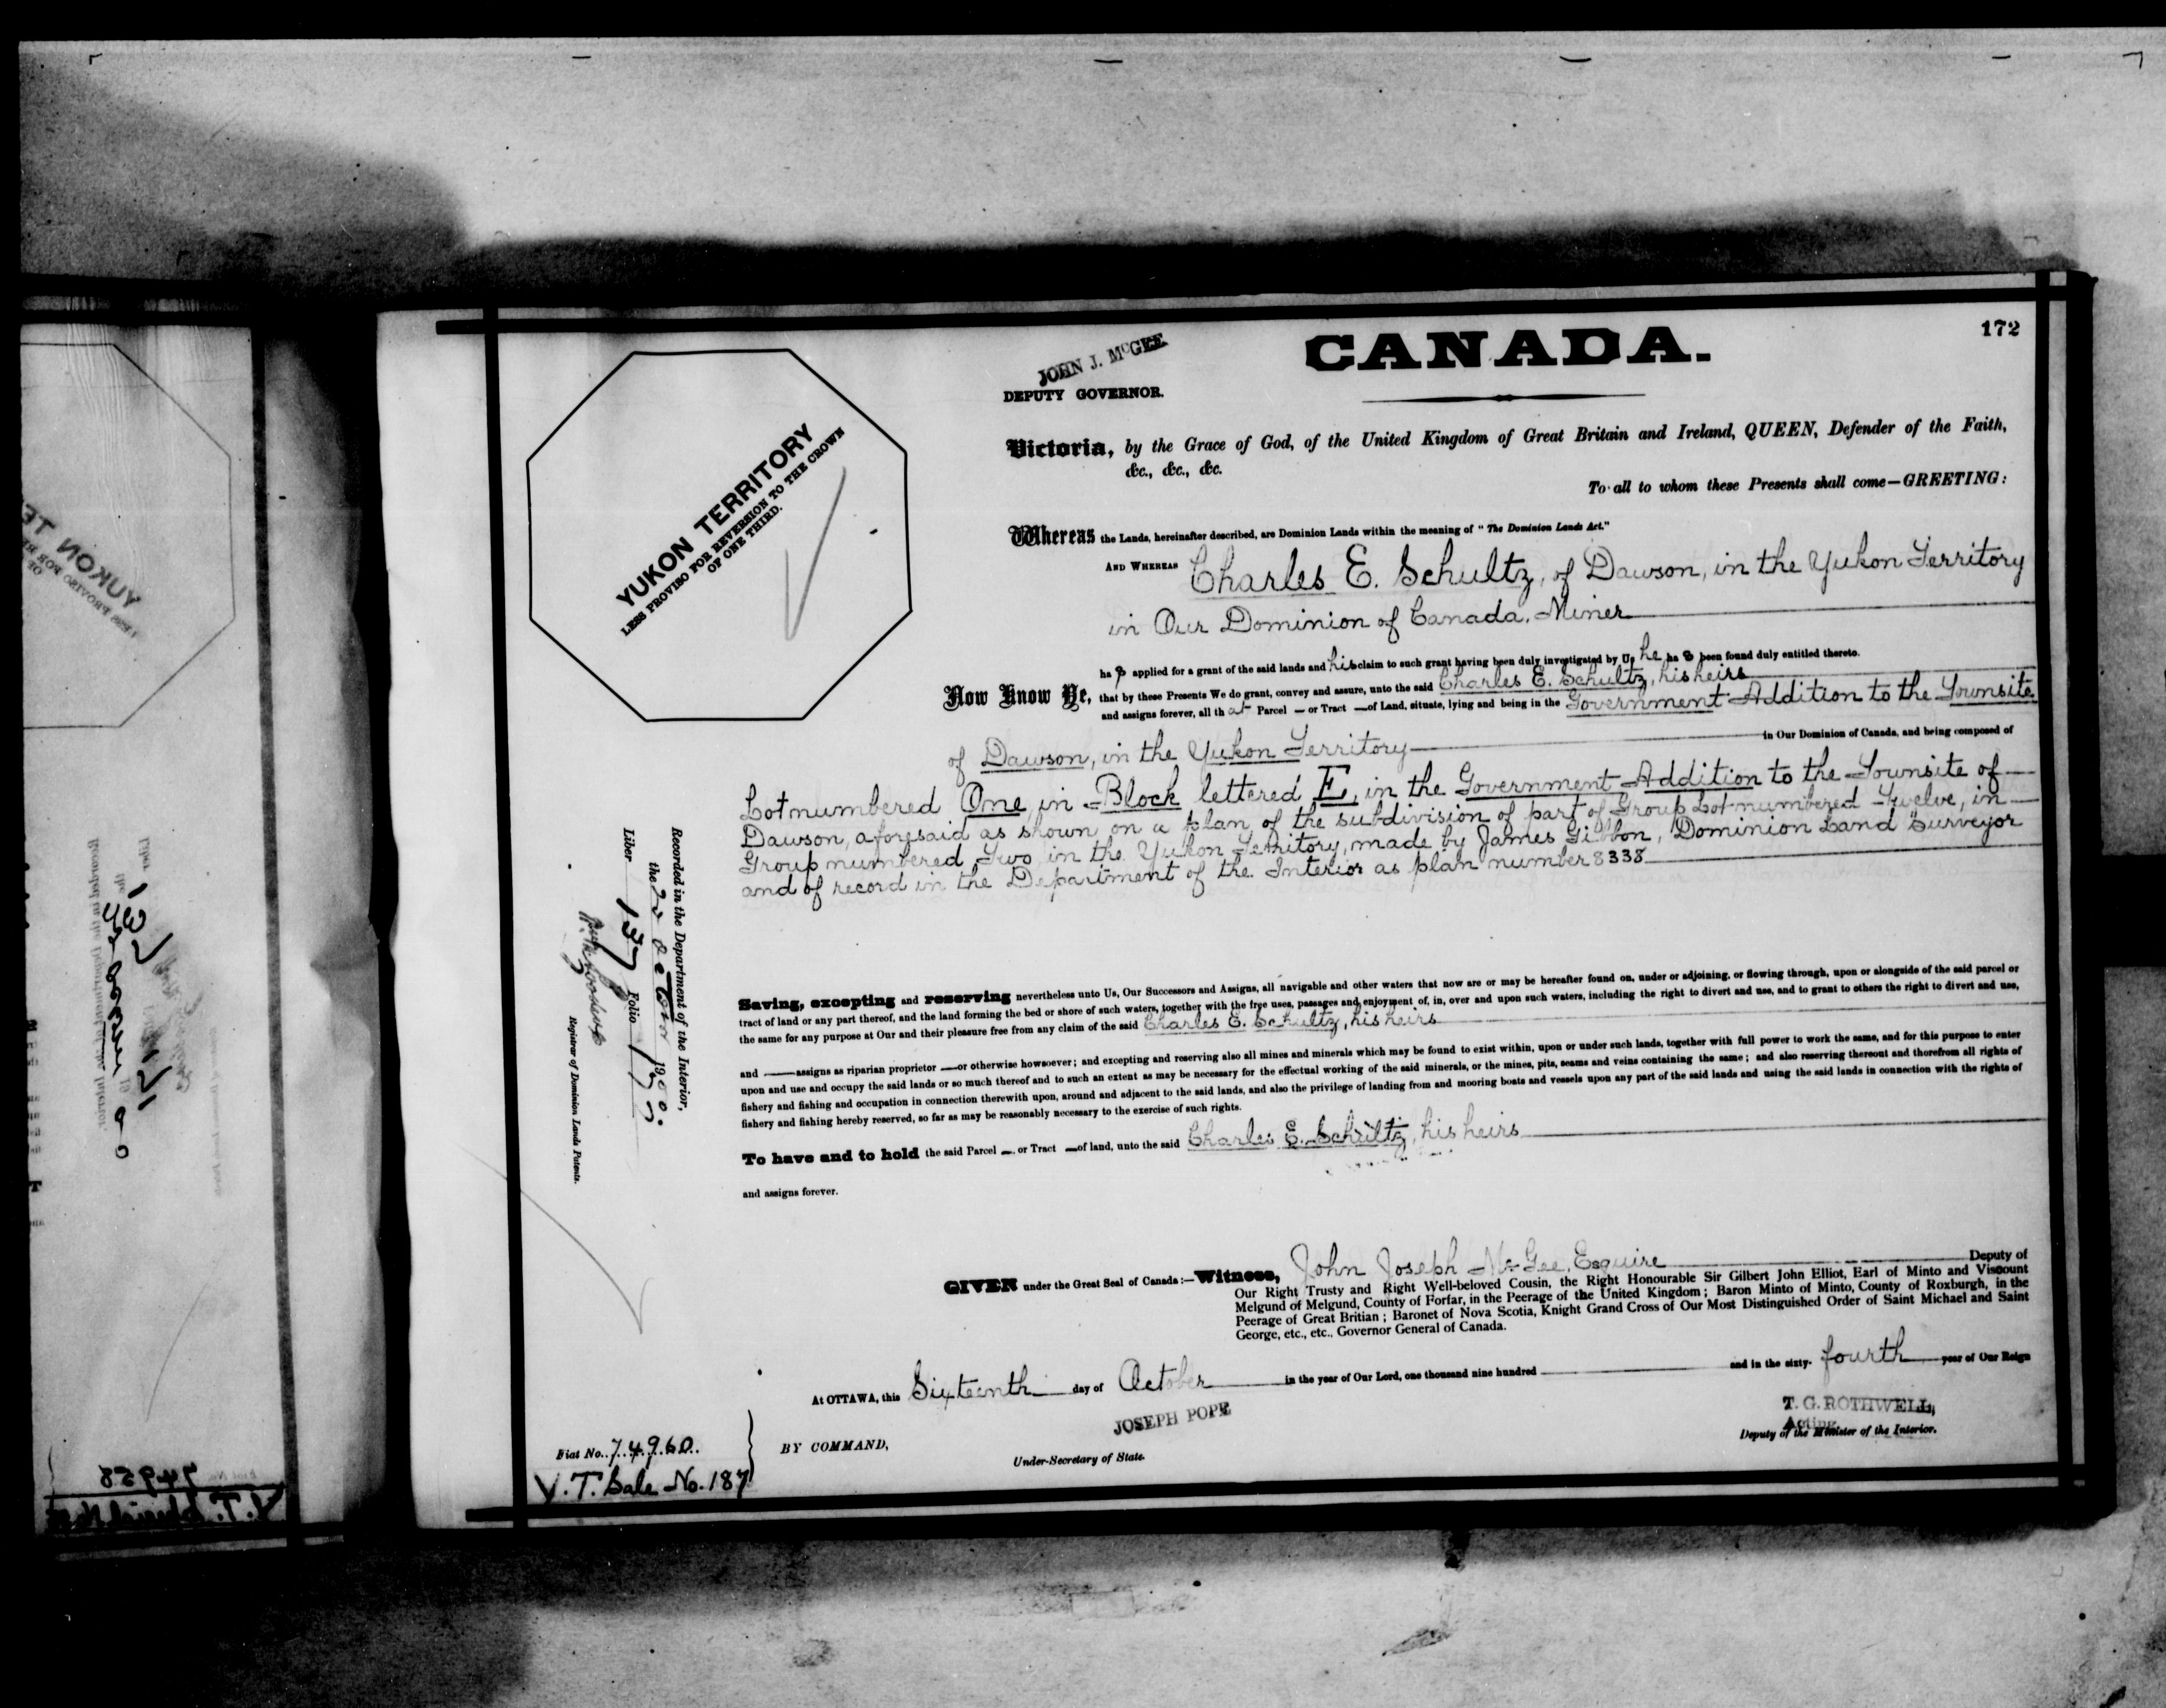 172
CANADA.
JOHN J. McGEE
DEPUTY GOVERNOR.
YUKON TERRITORY
LESS PROVISO FOR REVERSION TO THE CROWN
OF ONE THIRD.
Victoria, by the Grace of God, of the United Kingdom of Great Britain and Ireland, QUEEN, Defender of the Faith,
&c., &c., &c.
To all to whom these Presents shall come—GREETING:
Whereas the Lands, hereinafter described, are Dominion Lands within the meaning of "The Dominion Lands Act."
AND WHEREAS Charles E. Schultz, of Dawson, in the Yukon Territory
in Our Dominion of Canada, Miner
ha s applied for a grant of the said lands and his claim to such grant having been duly investigated by Us he ha s been found duly entitled thereto.
Now Know Ye, that by these Presents We do grant, convey and assure, unto the said Charles E. Schultz, his heirs
and assigns forever, all th at Parcel — or Tract — of Land, situate, lying and being in the Government Addition to the Townsite
of Dawson, in the Yukon Territory in Our Dominion of Canada, and being composed of
Lot numbered One, in Block lettered E, in the Government Addition to the Townsite of
Dawson, aforesaid as shown on a plan of the subdivision of part of Group Lot numbered Twelve, in
Group numbered Two, in the Yukon Territory, made by James Gibbon, Dominion Land Surveyor
and of record in the Department of the Interior as plan number 8338
Recorded in the Department of the Interior,
the 22 October 1900.
Liber 137 Folio 172
Registrar of Dominion Lands Patents.
Saving, excepting and reserving nevertheless unto Us, Our Successors and Assigns, all navigable and other waters that now are or may be hereafter found on, under or adjoining, or flowing through, upon or alongside of the said parcel or
tract of land or any part thereof, and the land forming the bed or shore of such waters, together with the free uses, passages and enjoyment of, in, over and upon such waters, including the right to divert and use, and to grant to others the right to divert and use,
the same for any purpose at Our and their pleasure free from any claim of the said Charles E. Schultz, his heirs
and — assigns as riparian proprietor — or otherwise howsoever; and excepting and reserving also all mines and minerals which may be found to exist within, upon or under such lands, together with full power to work the same, and for this purpose to enter
upon and use and occupy the said lands or so much thereof and to such an extent as may be necessary for the effectual working of the said minerals, or the mines, pits, seams and veins containing the same; and also reserving thereout and therefrom all rights of
fishery and fishing and occupation in connection therewith upon, around and adjacent to the said lands, and also the privilege of landing from and mooring boats and vessels upon any part of the said lands and using the said lands in connection with the rights of
fishery and fishing hereby reserved, so far as may be reasonably necessary to the exercise of such rights.
To have and to hold the said Parcel — or Tract — of land, unto the said Charles E. Schultz, his heirs
and assigns forever.
GIVEN under the Great Seal of Canada:—Witness, John Joseph McGee, Esquire Deputy of
Our Right Trusty and Right Well-beloved Cousin, the Right Honourable Sir Gilbert John Elliot, Earl of Minto and Viscount
Melgund of Melgund, County of Forfar, in the Peerage of the United Kingdom; Baron Minto of Minto, County of Roxburgh, in the
Peerage of Great Britian; Baronet of Nova Scotia, Knight Grand Cross of Our Most Distinguished Order of Saint Michael and Saint
George, etc., etc., Governor General of Canada.
At OTTAWA, this Sixteenth day of October in the year of Our Lord, one thousand nine hundred and in the sixty- fourth year of Our Reign
JOSEPH POPE
T. G. ROTHWELL,
Acting
Deputy of the Minister of the Interior.
BY COMMAND,
Under-Secretary of State.
Fiat No. 74960.
Y.T. Sale No. 187